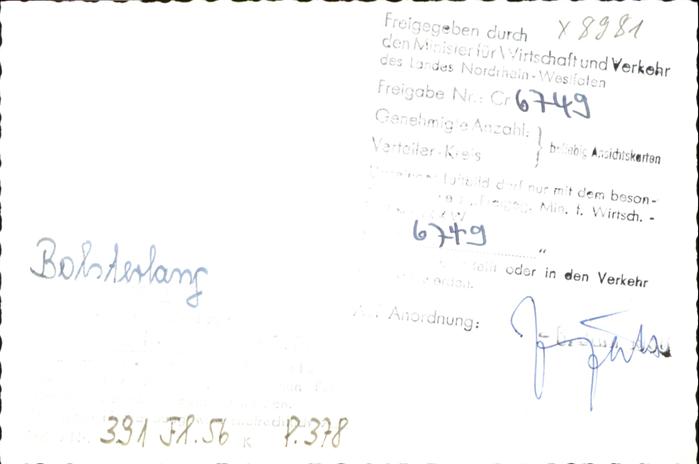 Freigegeben durch
x 8981
den Minister für Wirtschaft und Verkehr
des Landes Nordrhein-Westfalen
Freigabe Nr.: Cr 6749
Genehmigte Anzahl: } beliebig Ansichtskarten
Verteiler-Kreis
Luftbild darf nur mit dem beson-
Min. f. Wirtsch. -
6749 "
oder in den Verkehr
werden.
Auf Anordnung:
Bolsterlang
391 Fl. 56 K P. 378